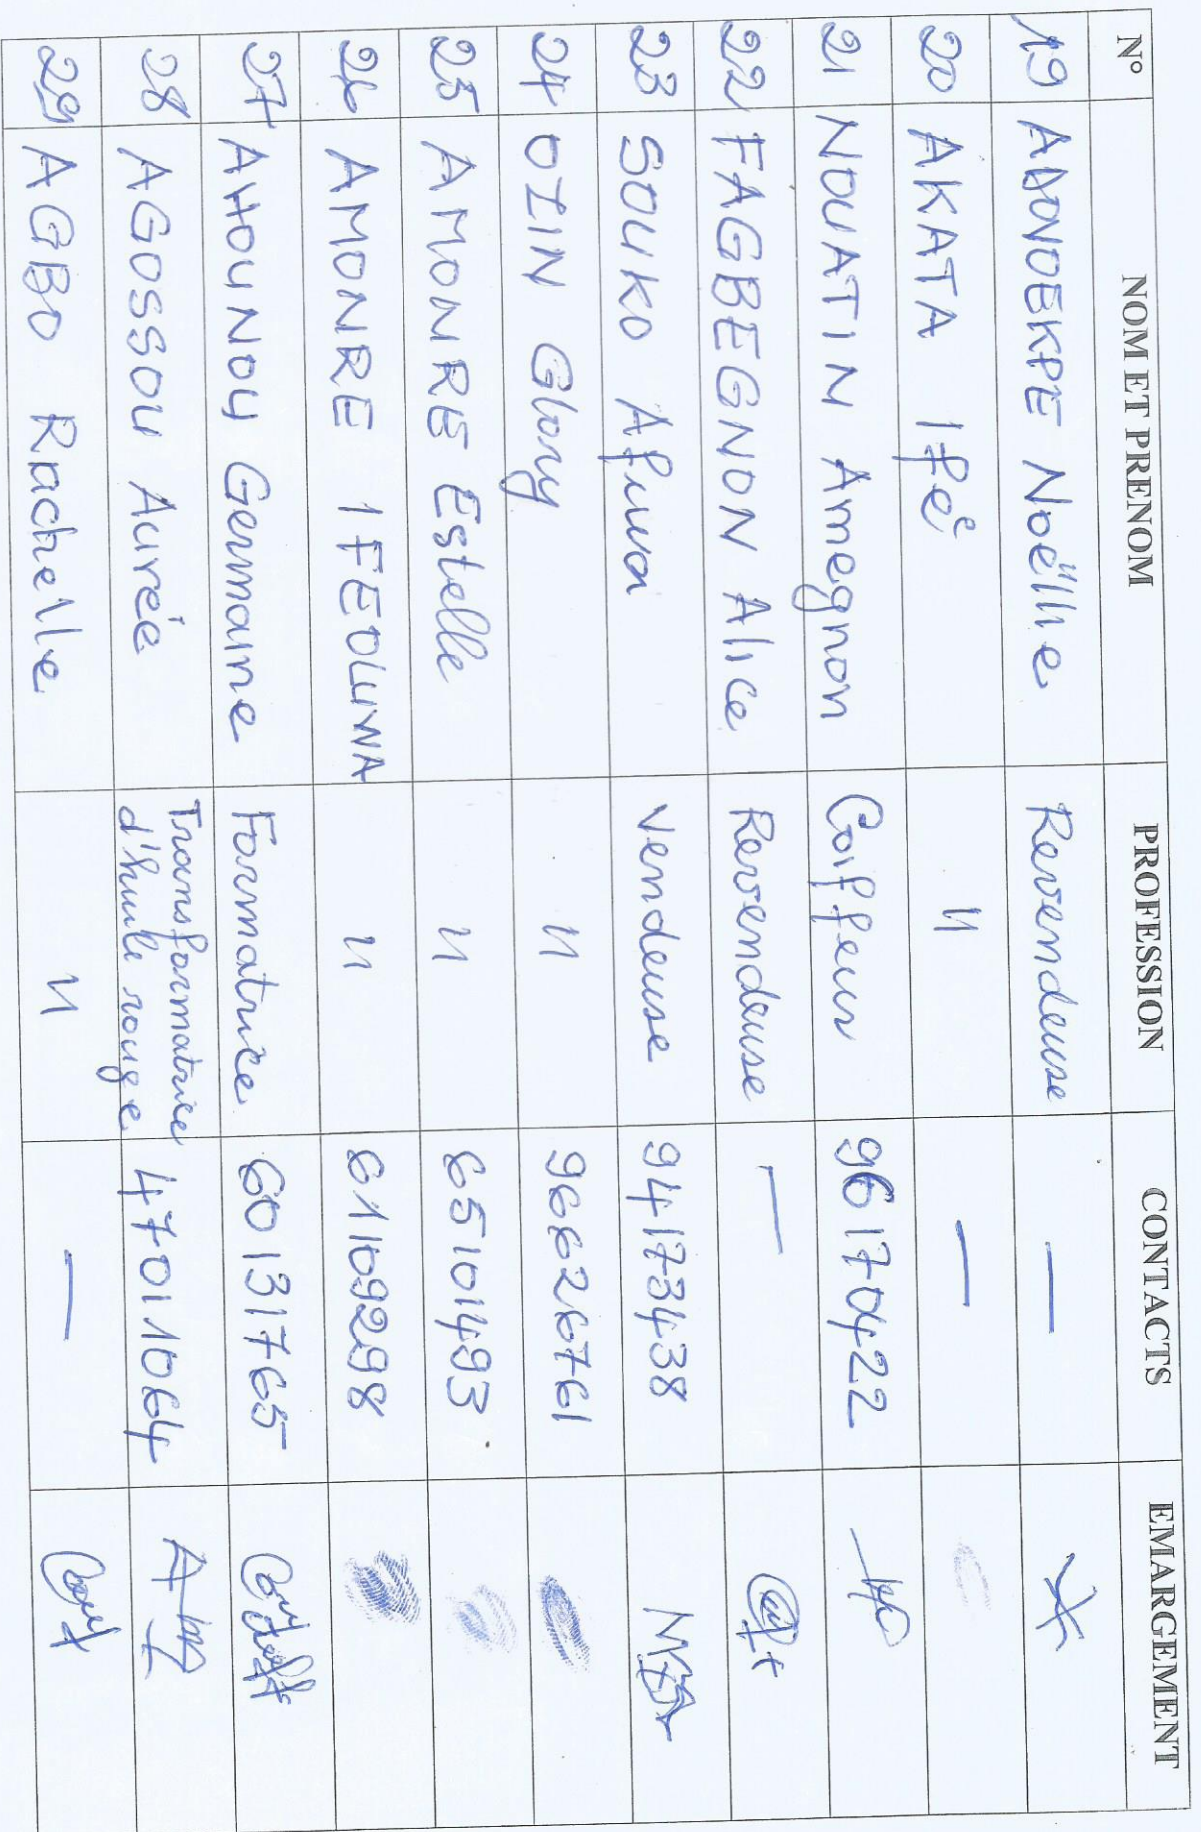 N° NOM ET PRENOM PROFESSION CONTACTS EMARGEMENT
19 ADOVOEKPE Noëllie Revendeuse —
20 AKATA Ifè 〃 —
21 NOUATIN Amegnon Coiffeur 96170422
22 FAGBEGNON Alice Revendeuse —
23 SOUKO Afiwa Vendeuse 94173438
24 OZIN Glory 〃 96626761
25 AMONRE Estelle 〃 65101493
26 AMONRE IFEOLUWA 〃 61109298
27 AHOUNOU Germaine Formatrice 60131765
28 AGOSSOU Aurée Transformatrice
d'huile rouge 47011064
29 AGBO Rachelle 〃 —